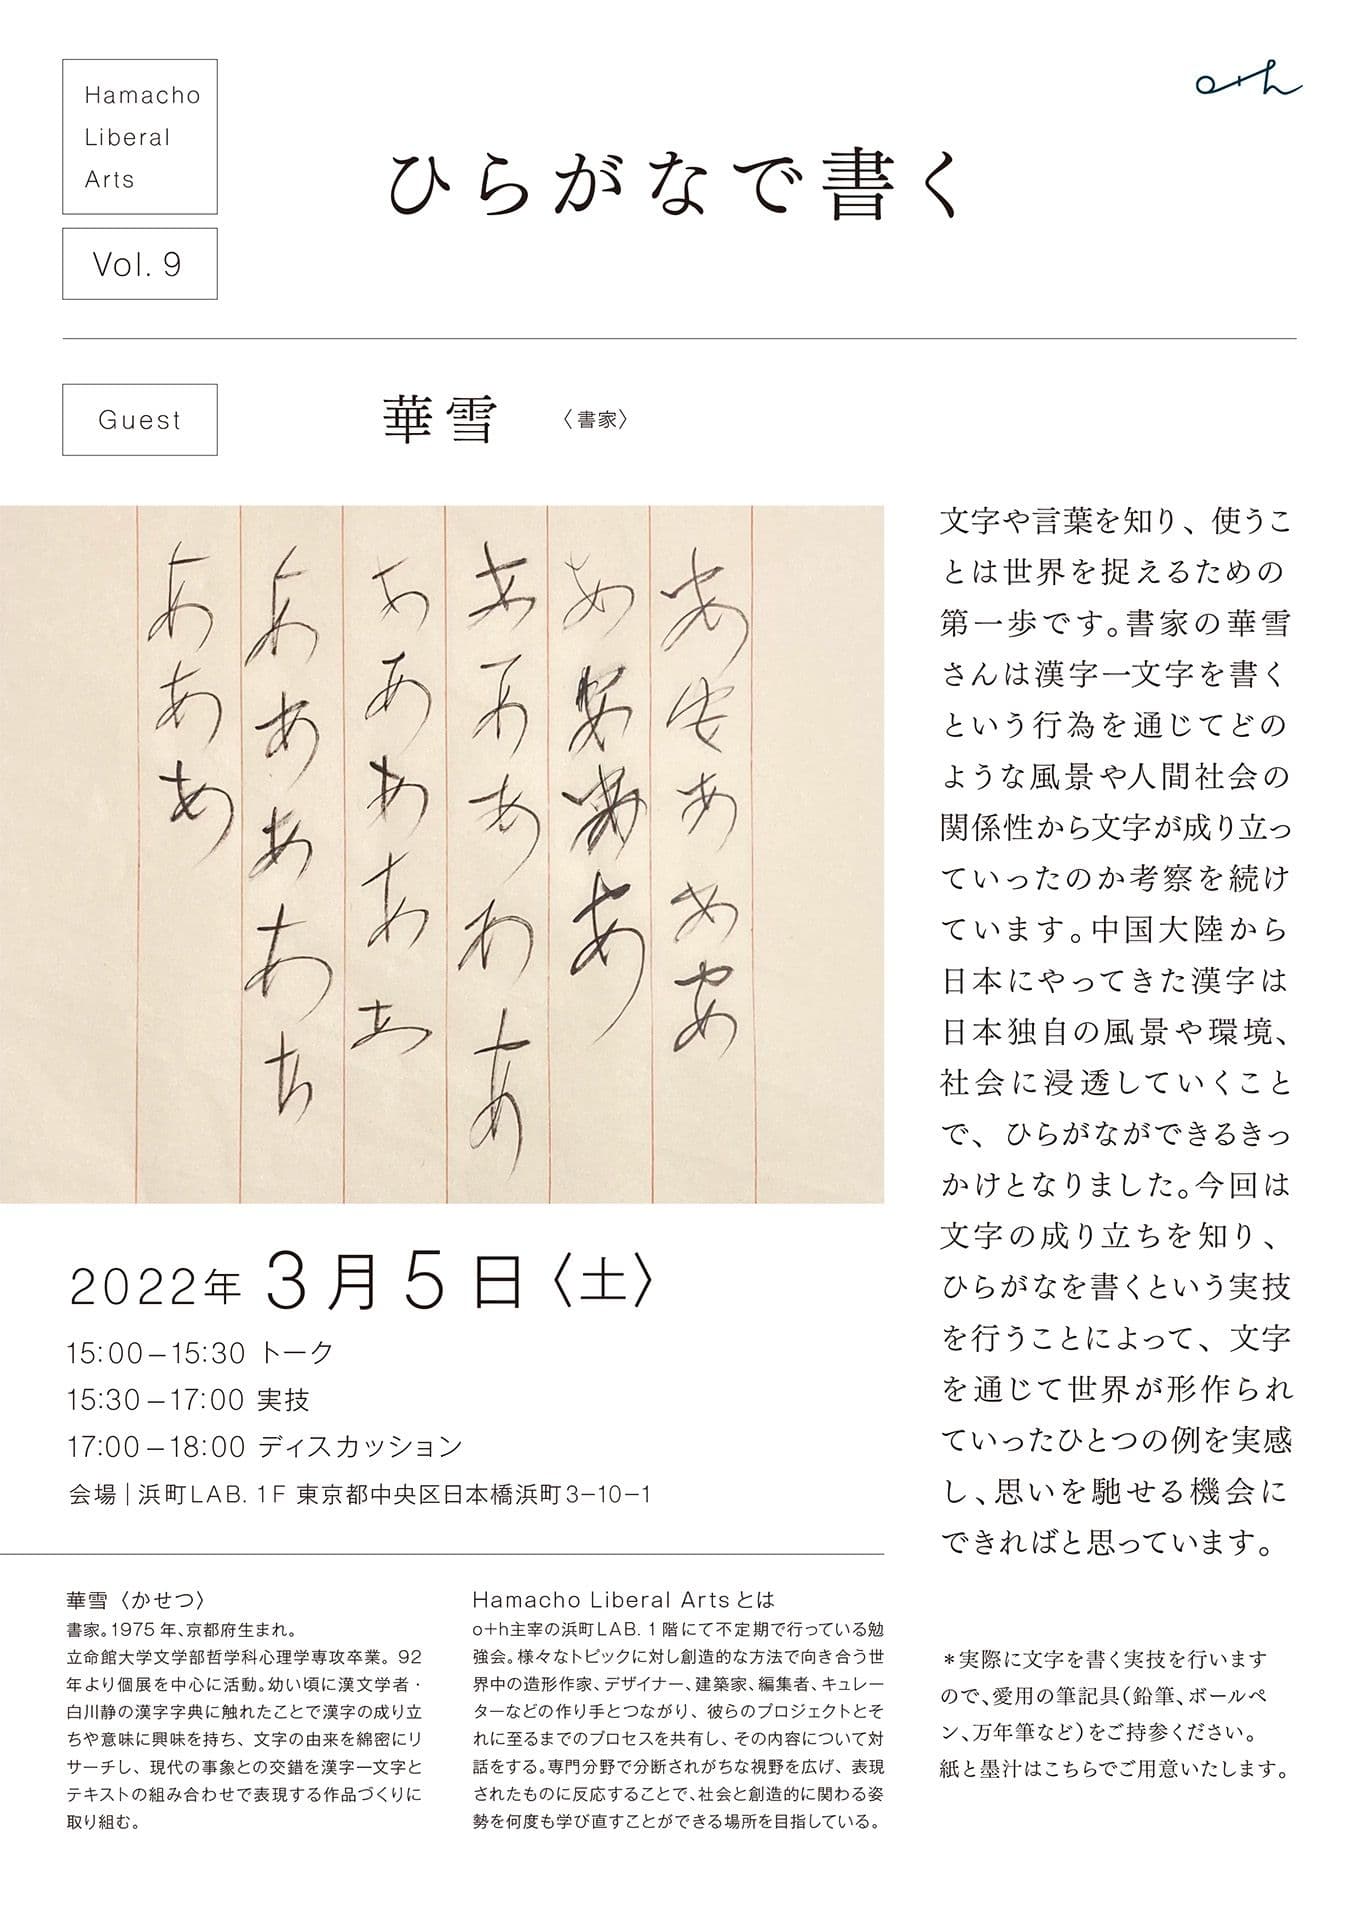 Hamacho
Liberal
Arts
Vol. 9
o+h
ひらがなで書く
Guest
華雪 〈書家〉
あああ
あああああ
あああああ
あああああ
ああああ
あああああ
文字や言葉を知り、使うこ
とは世界を捉えるための
第一歩です。書家の華雪
さんは漢字一文字を書く
という行為を通じてどの
ような風景や人間社会の
関係性から文字が成り立っ
ていったのか考察を続け
ています。中国大陸から
日本にやってきた漢字は
日本独自の風景や環境、
社会に浸透していくこと
で、ひらがなができるきっ
かけとなりました。今回は
文字の成り立ちを知り、
ひらがなを書くという実技
を行うことによって、文字
を通じて世界が形作られ
ていったひとつの例を実感
し、思いを馳せる機会に
できればと思っています。
2022年 3月5日〈土〉
15:00–15:30 トーク
15:30–17:00 実技
17:00–18:00 ディスカッション
会場|浜町LAB. 1F 東京都中央区日本橋浜町3–10–1
華雪〈かせつ〉
書家。1975年、京都府生まれ。
立命館大学文学部哲学科心理学専攻卒業。92
年より個展を中心に活動。幼い頃に漢文学者・
白川静の漢字字典に触れたことで漢字の成り立
ちや意味に興味を持ち、文字の由来を綿密にリ
サーチし、現代の事象との交錯を漢字一文字と
テキストの組み合わせで表現する作品づくりに
取り組む。
Hamacho Liberal Artsとは
o+h主宰の浜町LAB. 1階にて不定期で行っている勉
強会。様々なトピックに対し創造的な方法で向き合う世
界中の造形作家、デザイナー、建築家、編集者、キュレー
ターなどの作り手とつながり、彼らのプロジェクトとそ
れに至るまでのプロセスを共有し、その内容について対
話をする。専門分野で分断されがちな視野を広げ、表現
されたものに反応することで、社会と創造的に関わる姿
勢を何度も学び直すことができる場所を目指している。
＊実際に文字を書く実技を行います
ので、愛用の筆記具（鉛筆、ボールペ
ン、万年筆など）をご持参ください。
紙と墨汁はこちらでご用意いたします。